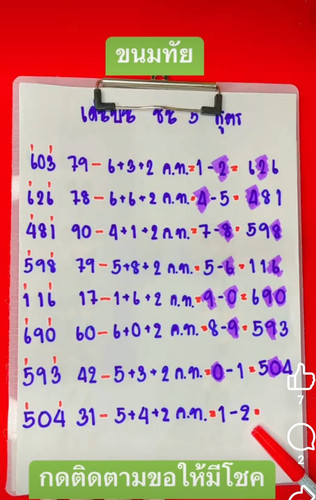 ขนมทัย
เด่นบน ชน 5 สูตร
603 79 - 6+3+2 ค.ท.=1-2= 626
626 78 - 6+6+2 ค.ท.=4-5= 481
481 90 - 4+1+2 ค.ท.=7-8= 598
598 79 - 5+8+2 ค.ท.=5-6= 116
116 17 - 1+6+2 ค.ท.=9-0= 690
690 60 - 6+0+2 ค.ท.=8-9= 593
593 42 - 5+3+2 ค.ท.=0-1= 504
504 31 - 5+4+2 ค.ท.=1-2=
7
2
กดติดตามขอให้มีโชค